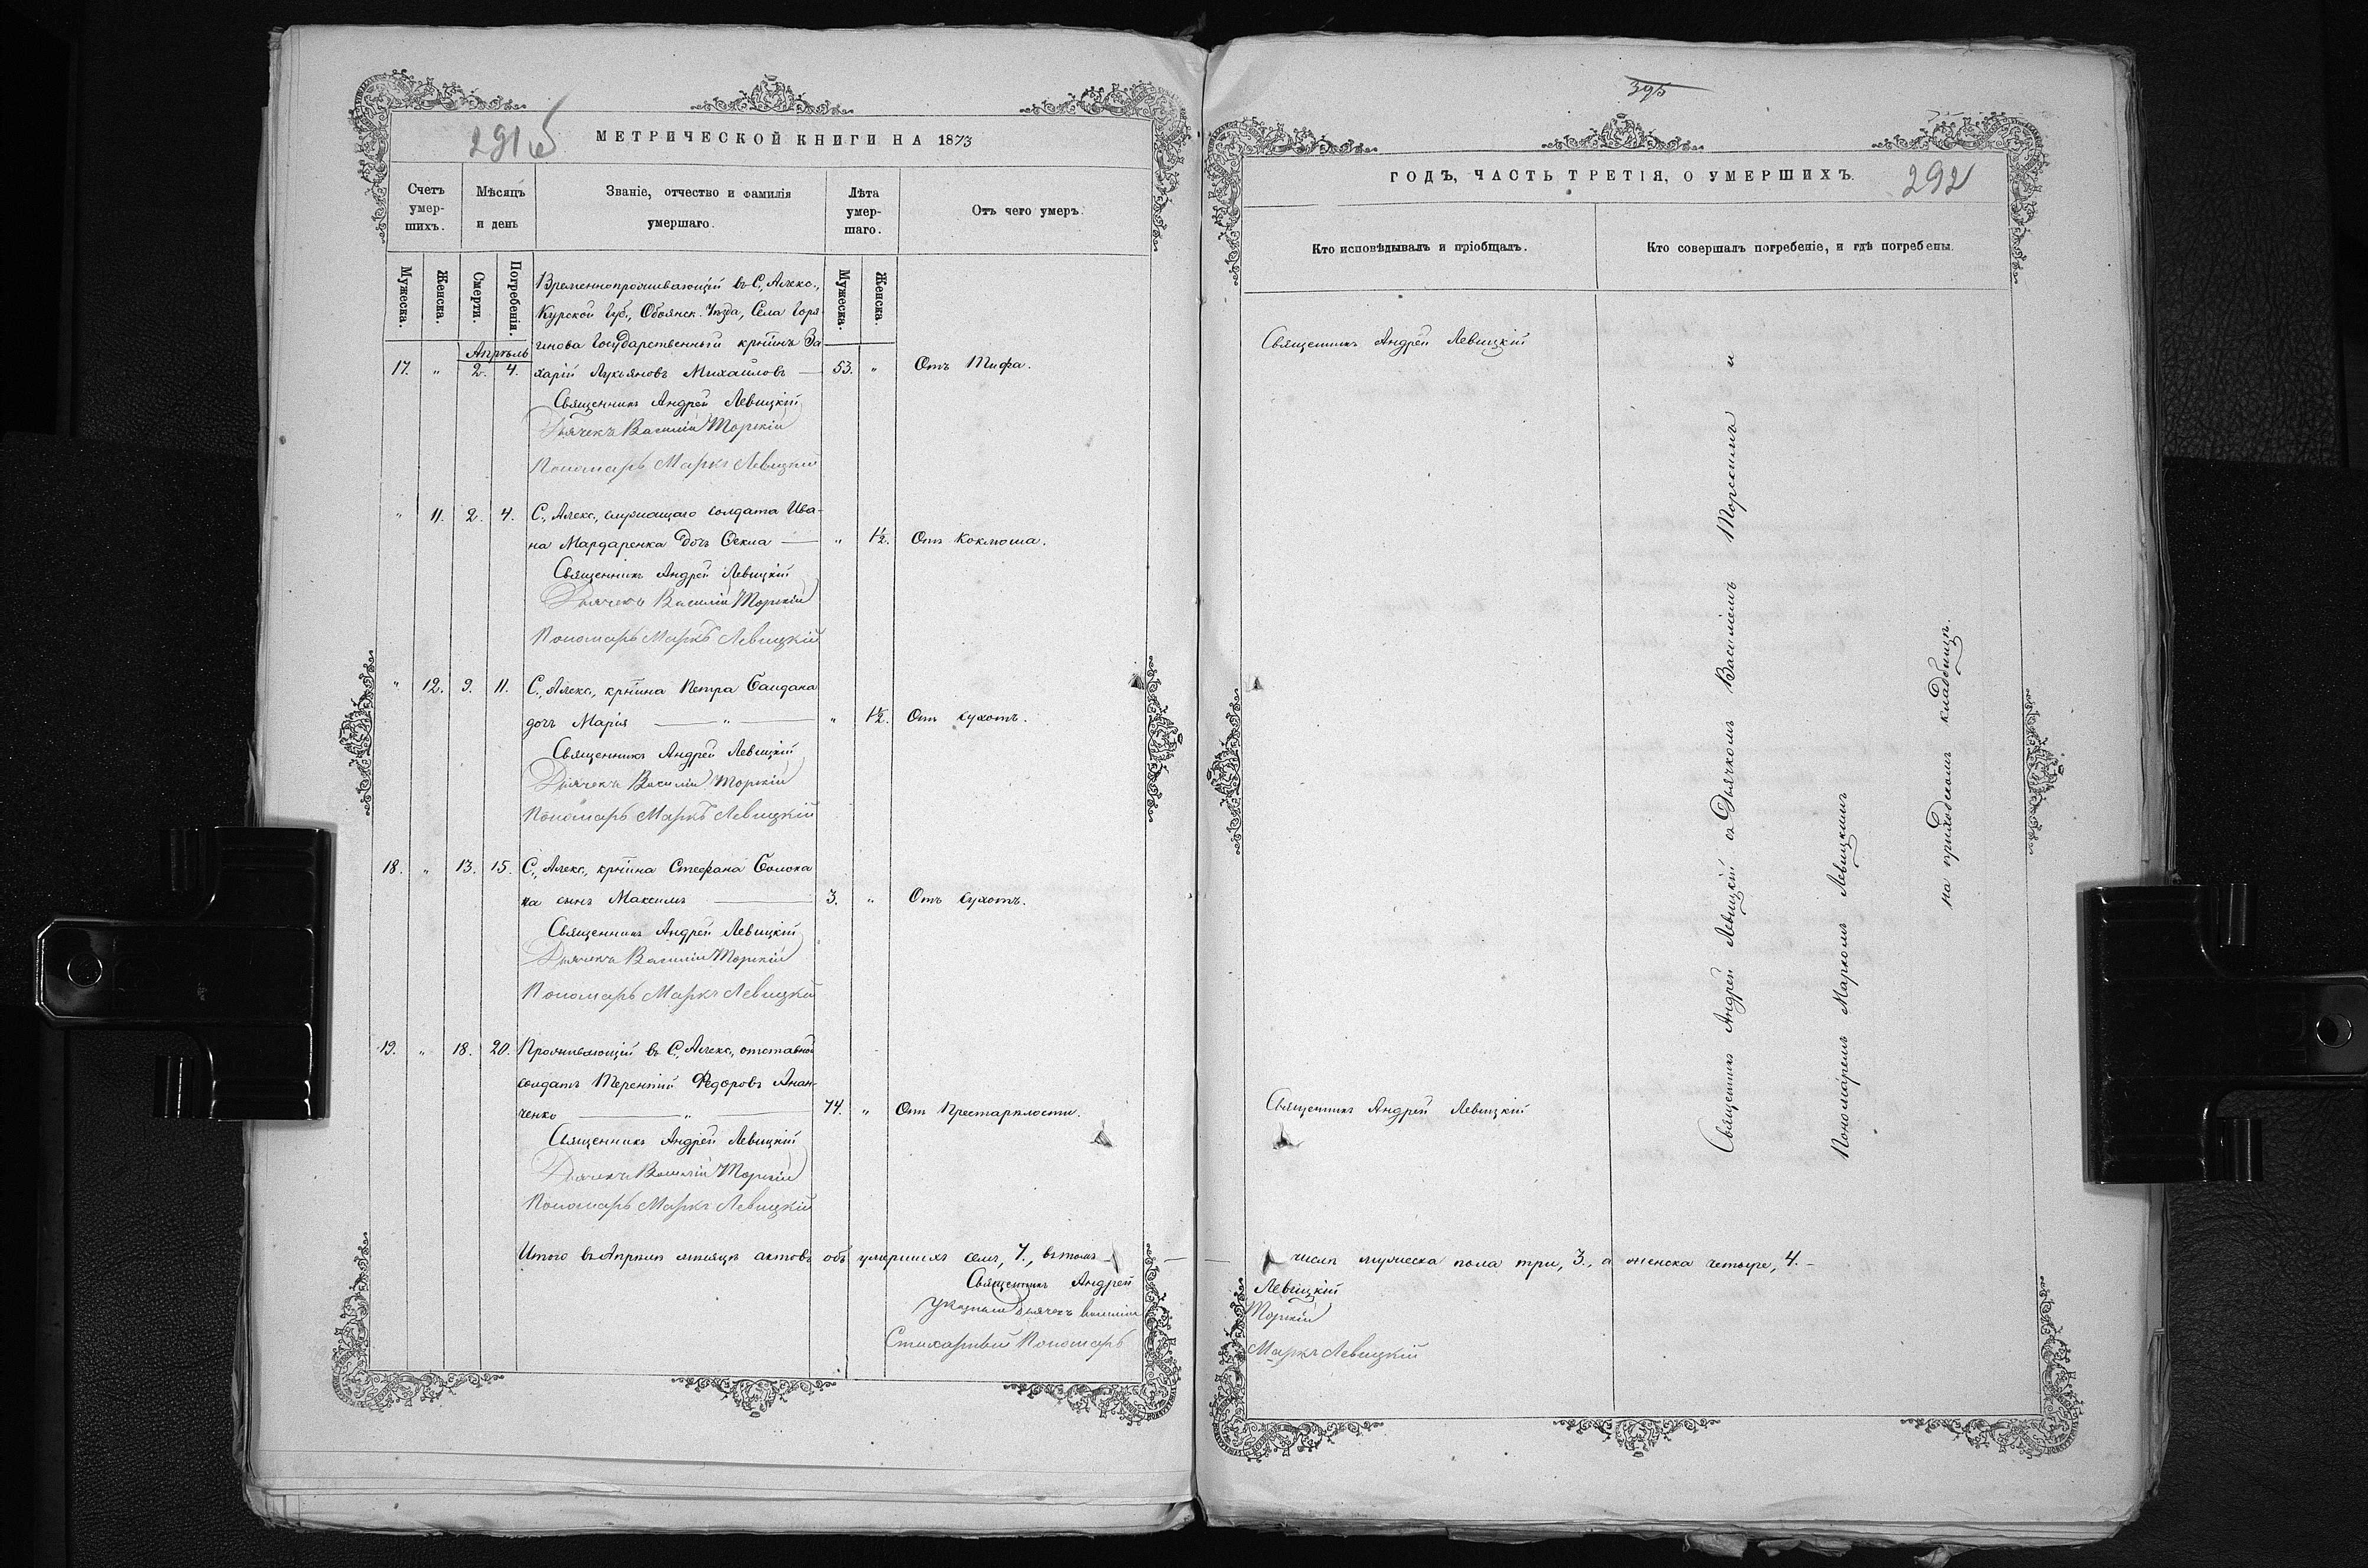 291 об
МЕТРИЧЕСКОЙ КНИГИ НА 1873
Счетъ умер-шихъ.
Мѣсяцъ и день
Званіе, отчество и фамилія умершаго.
Лѣта умер-шаго.
Отъ чего умеръ.
Мужеска.
Женска.
Смерти.
Погребенія.
Мужеска.
Женска.
Временнопроживающій въ С., Алекс.,
Курской Губ., Обоянск. Уѣзда, Села Горя
инова Государственный кр͠тинъ За
Апрѣль
17. " 2. 4. харій Лукьяновъ Михаиловъ — 53. " Отъ Тифа.
Священникъ Андрей Левицкій
Дьячекъ Василій Торскій
Пономарь Маркъ Левицкій
" 11. 2. 4. С., Алекс., служащаго солдата Ива-
на Мардаренка дочь Ѳекла — " 1½. Отъ Коклюша.
Священникъ Андрей Левицкій
Дьячекъ Василій Торскій
Пономарь Маркъ Левицкій
" 12. 9. 11. С., Алекс., кр͠тина Петра Баидана
дочь Марія — " — " 1½. Отъ Сухотъ.
Священникъ Андрей Левицкій
Дьячекъ Василій Торскій
Пономарь Маркъ Левицкій
18. " 13. 15. С., Алекс., кр͠тина Стефана Солока
на сынъ Максимъ — 3. " Отъ Сухотъ.
Священникъ Андрей Левицкій
Дьячекъ Василій Торскій
Пономарь Маркъ Левицкій
19. " 18. 20. Проживающій въ С., Алекс., отставной
солдатъ Терентій Ѳедоровъ Анан-
ченко — " — 74. " Отъ Престарѣлости.
Священникъ Андрей Левицкій
Дьячекъ Василій Торскій
Пономарь Маркъ Левицкій
Итого въ Апрѣлѣ мѣсяцѣ актовъ объ умершихъ семь, 7., въ томъ
Священникъ Андрей
Указный Дьячекъ Василій
Стихарный Пономарь
395
ГОДЪ, ЧАСТЬ ТРЕТІЯ, О УМЕРШИХЪ.
292
Кто исповѣдывалъ и пріобщалъ.
Кто совершалъ погребеніе, и гдѣ погребены.
Священникъ Андрей Левицкій
Священникъ Андрей Левицкій
Священникъ Андрей Левицкій съ Дьячкомъ Василіемъ Торскимъ и
Пономаремъ Маркомъ Левицкимъ
на приходскомъ кладбищѣ.
числѣ мужеска пола три, 3., а женска четыре, 4. -
Левицкій
Торскій
Маркъ Левицкій